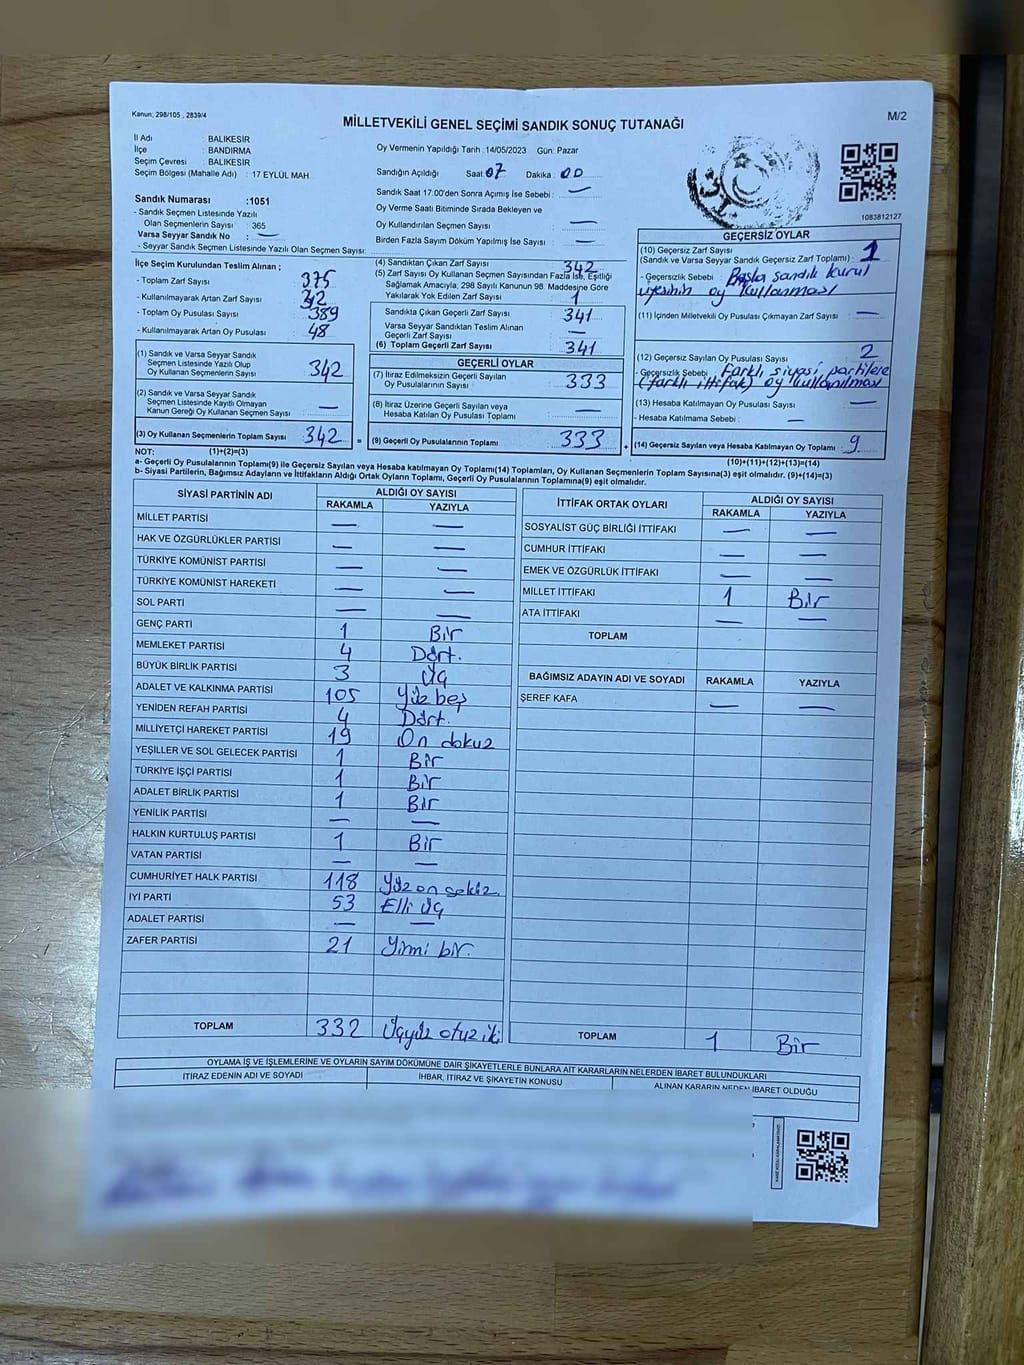 Kanun; 298/105 , 2839/4
M/2
MİLLETVEKİLİ GENEL SEÇİMİ SANDIK SONUÇ TUTANAĞI
İl Adı : BALIKESİR
İlçe : BANDIRMA
Seçim Çevresi : BALIKESİR
Seçim Bölgesi (Mahalle Adı) : 17 EYLÜL MAH
Sandık Numarası :1051
- Sandık Seçmen Listesinde Yazılı
Olan Seçmenlerin Sayısı : 365
Varsa Seyyar Sandık No : —
- Seyyar Sandık Seçmen Listesinde Yazılı Olan Seçmen Sayısı:
Oy Vermenin Yapıldığı Tarih :14/05/2023 Gün: Pazar
Sandığın Açıldığı Saat: 07 Dakika: 00
Sandık Saat 17.00'den Sonra Açımış İse Sebebi : —
Oy Verme Saati Bitiminde Sırada Bekleyen ve
Oy Kullandırılan Seçmen Sayısı : —
Birden Fazla Sayım Döküm Yapılmış İse Sayısı : —
1083812127
İlçe Seçim Kurulundan Teslim Alınan ;
- Toplam Zarf Sayısı : 375
- Kullanılmayarak Artan Zarf Sayısı :
- Toplam Oy Pusulası Sayısı : 389
- Kullanılmayarak Artan Oy Pusulası : 48
(1) Sandık ve Varsa Seyyar Sandık
Seçmen Listesinde Yazılı Olup
Oy Kullanan Seçmenlerin Sayısı : 342
(2) Sandık ve Varsa Seyyar Sandık
Seçmen Listesinde Kayıtlı Olmayan
Kanun Gereği Oy Kullanan Seçmen Sayısı : —
(3) Oy Kullanan Seçmenlerin Toplam Sayısı : 342 =
(4) Sandıktan Çıkan Zarf Sayısı : 342
(5) Zarf Sayısı Oy Kullanan Seçmen Sayısından Fazla İse, Eşitliği
Sağlamak Amacıyla; 298 Sayılı Kanunun 98. Maddesine Göre
Yakılarak Yok Edilen Zarf Sayısı : 1
Sandıkta Çıkan Geçerli Zarf Sayısı : 341
Varsa Seyyar Sandıktan Teslim Alınan
Geçerli Zarf Sayısı : —
(6) Toplam Geçerli Zarf Sayısı : 341
GEÇERLİ OYLAR
(7) İtiraz Edilmeksizin Geçerli Sayılan
Oy Pusulalarının Sayısı : 333
(8) İtiraz Üzerine Geçerli Sayılan veya
Hesaba Katılan Oy Pusulası Toplamı : —
(9) Geçerli Oy Pusulalarının Toplamı : 333 +
GEÇERSİZ OYLAR
(10) Geçersiz Zarf Sayısı
(Sandık ve Varsa Seyyar Sandık Geçersiz Zarf Toplamı) : 1
- Geçersizlik Sebebi : Başka sandık kurul
üyesinin oy kullanması
(11) İçinden Milletvekili Oy Pusulası Çıkmayan Zarf Sayısı : —
(12) Geçersiz Sayılan Oy Pusulası Sayısı : 2
- Geçersizlik Sebebi : Farklı siyasi partilere
(farklı ittifak) oy kullanılması
(13) Hesaba Katılmayan Oy Pusulası Sayısı : —
- Hesaba Katılmama Sebebi : —
(14) Geçersiz Sayılan veya Hesaba Katılmayan Oy Toplamı : 9
NOT: (1)+(2)=(3)
(10)+(11)+(12)+(13)=(14)
a- Geçerli Oy Pusulalarının Toplamı(9) ile Geçersiz Sayılan veya Hesaba katılmayan Oy Toplamı(14) Toplamları, Oy Kullanan Seçmenlerin Toplam Sayısına(3) eşit olmalıdır. (9)+(14)=(3)
b- Siyasi Partilerin, Bağımsız Adayların ve İttifakların Aldığı Ortak Oyların Toplamı, Geçerli Oy Pusulalarının Toplamına(9) eşit olmalıdır.
SİYASİ PARTİNİN ADI ALDIĞI OY SAYISI
RAKAMLA YAZIYLA
MİLLET PARTİSİ — —
HAK VE ÖZGÜRLÜKLER PARTİSİ — —
TÜRKİYE KOMÜNİST PARTİSİ — —
TÜRKİYE KOMÜNİST HAREKETİ — —
SOL PARTİ — —
GENÇ PARTİ 1 Bir
MEMLEKET PARTİSİ 4 Dört.
BÜYÜK BİRLİK PARTİSİ 3 Üç
ADALET VE KALKINMA PARTİSİ 105 Yüz beş
YENİDEN REFAH PARTİSİ 4 Dört.
MİLLİYETÇİ HAREKET PARTİSİ 19 On dokuz
YEŞİLLER VE SOL GELECEK PARTİSİ 1 Bir
TÜRKİYE İŞÇİ PARTİSİ 1 Bir
ADALET BİRLİK PARTİSİ 1 Bir
YENİLİK PARTİSİ — —
HALKIN KURTULUŞ PARTİSİ 1 Bir
VATAN PARTİSİ — —
CUMHURİYET HALK PARTİSİ 118 Yüz on sekiz
İYİ PARTİ 53 Elli üç
ADALET PARTİSİ — —
ZAFER PARTİSİ 21 Yirmi bir.
TOPLAM 332 Üçyüz otuz iki
İTTİFAK ORTAK OYLARI ALDIĞI OY SAYISI
RAKAMLA YAZIYLA
SOSYALİST GÜÇ BİRLİĞİ İTTİFAKI — —
CUMHUR İTTİFAKI — —
EMEK VE ÖZGÜRLÜK İTTİFAKI — —
MİLLET İTTİFAKI 1 Bir
ATA İTTİFAKI — —
TOPLAM
BAĞIMSIZ ADAYIN ADI VE SOYADI RAKAMLA YAZIYLA
ŞEREF KAFA — —
TOPLAM 1 Bir
OYLAMA İŞ VE İŞLEMLERİNE VE OYLARIN SAYIM DÖKÜMÜNE DAİR ŞİKAYETLERLE BUNLARA AİT KARARLARIN NELERDEN İBARET BULUNDUKLARI
İTİRAZ EDENİN ADI VE SOYADI İHBAR, İTİRAZ VE ŞİKAYETİN KONUSU ALINAN KARARIN NEDEN İBARET OLDUĞU